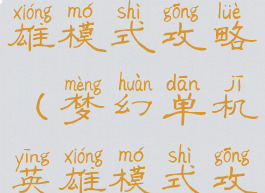 xióng mó shì gōng lüè
雄模式攻略
mèng huàn dān jī
（梦幻单机
yīng xióng mó shì gōng
英雄模式攻